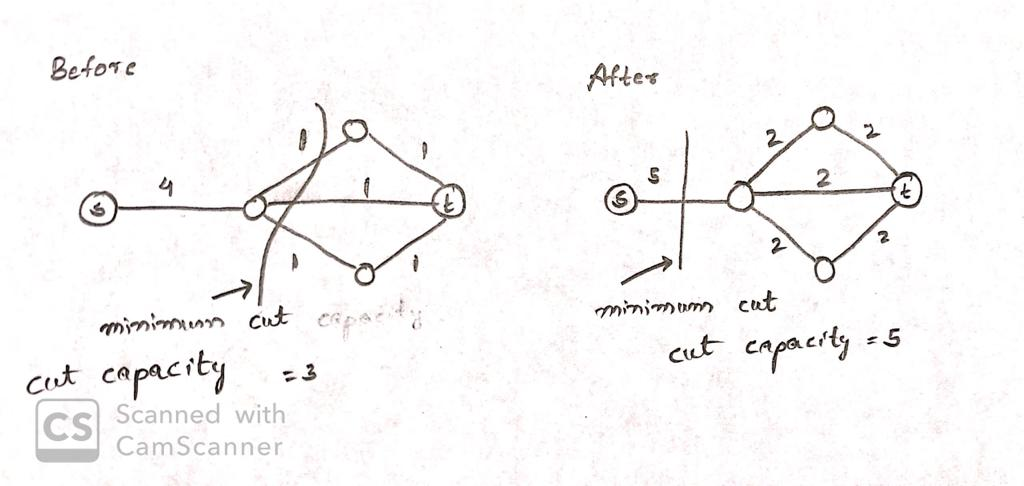 Before
1
1
4
1
S
t
1
1
minimum cut capacity
cut capacity = 3
After
2
2
5
2
S
t
2
2
minimum cut
cut capacity = 5
CS
Scanned with
CamScanner